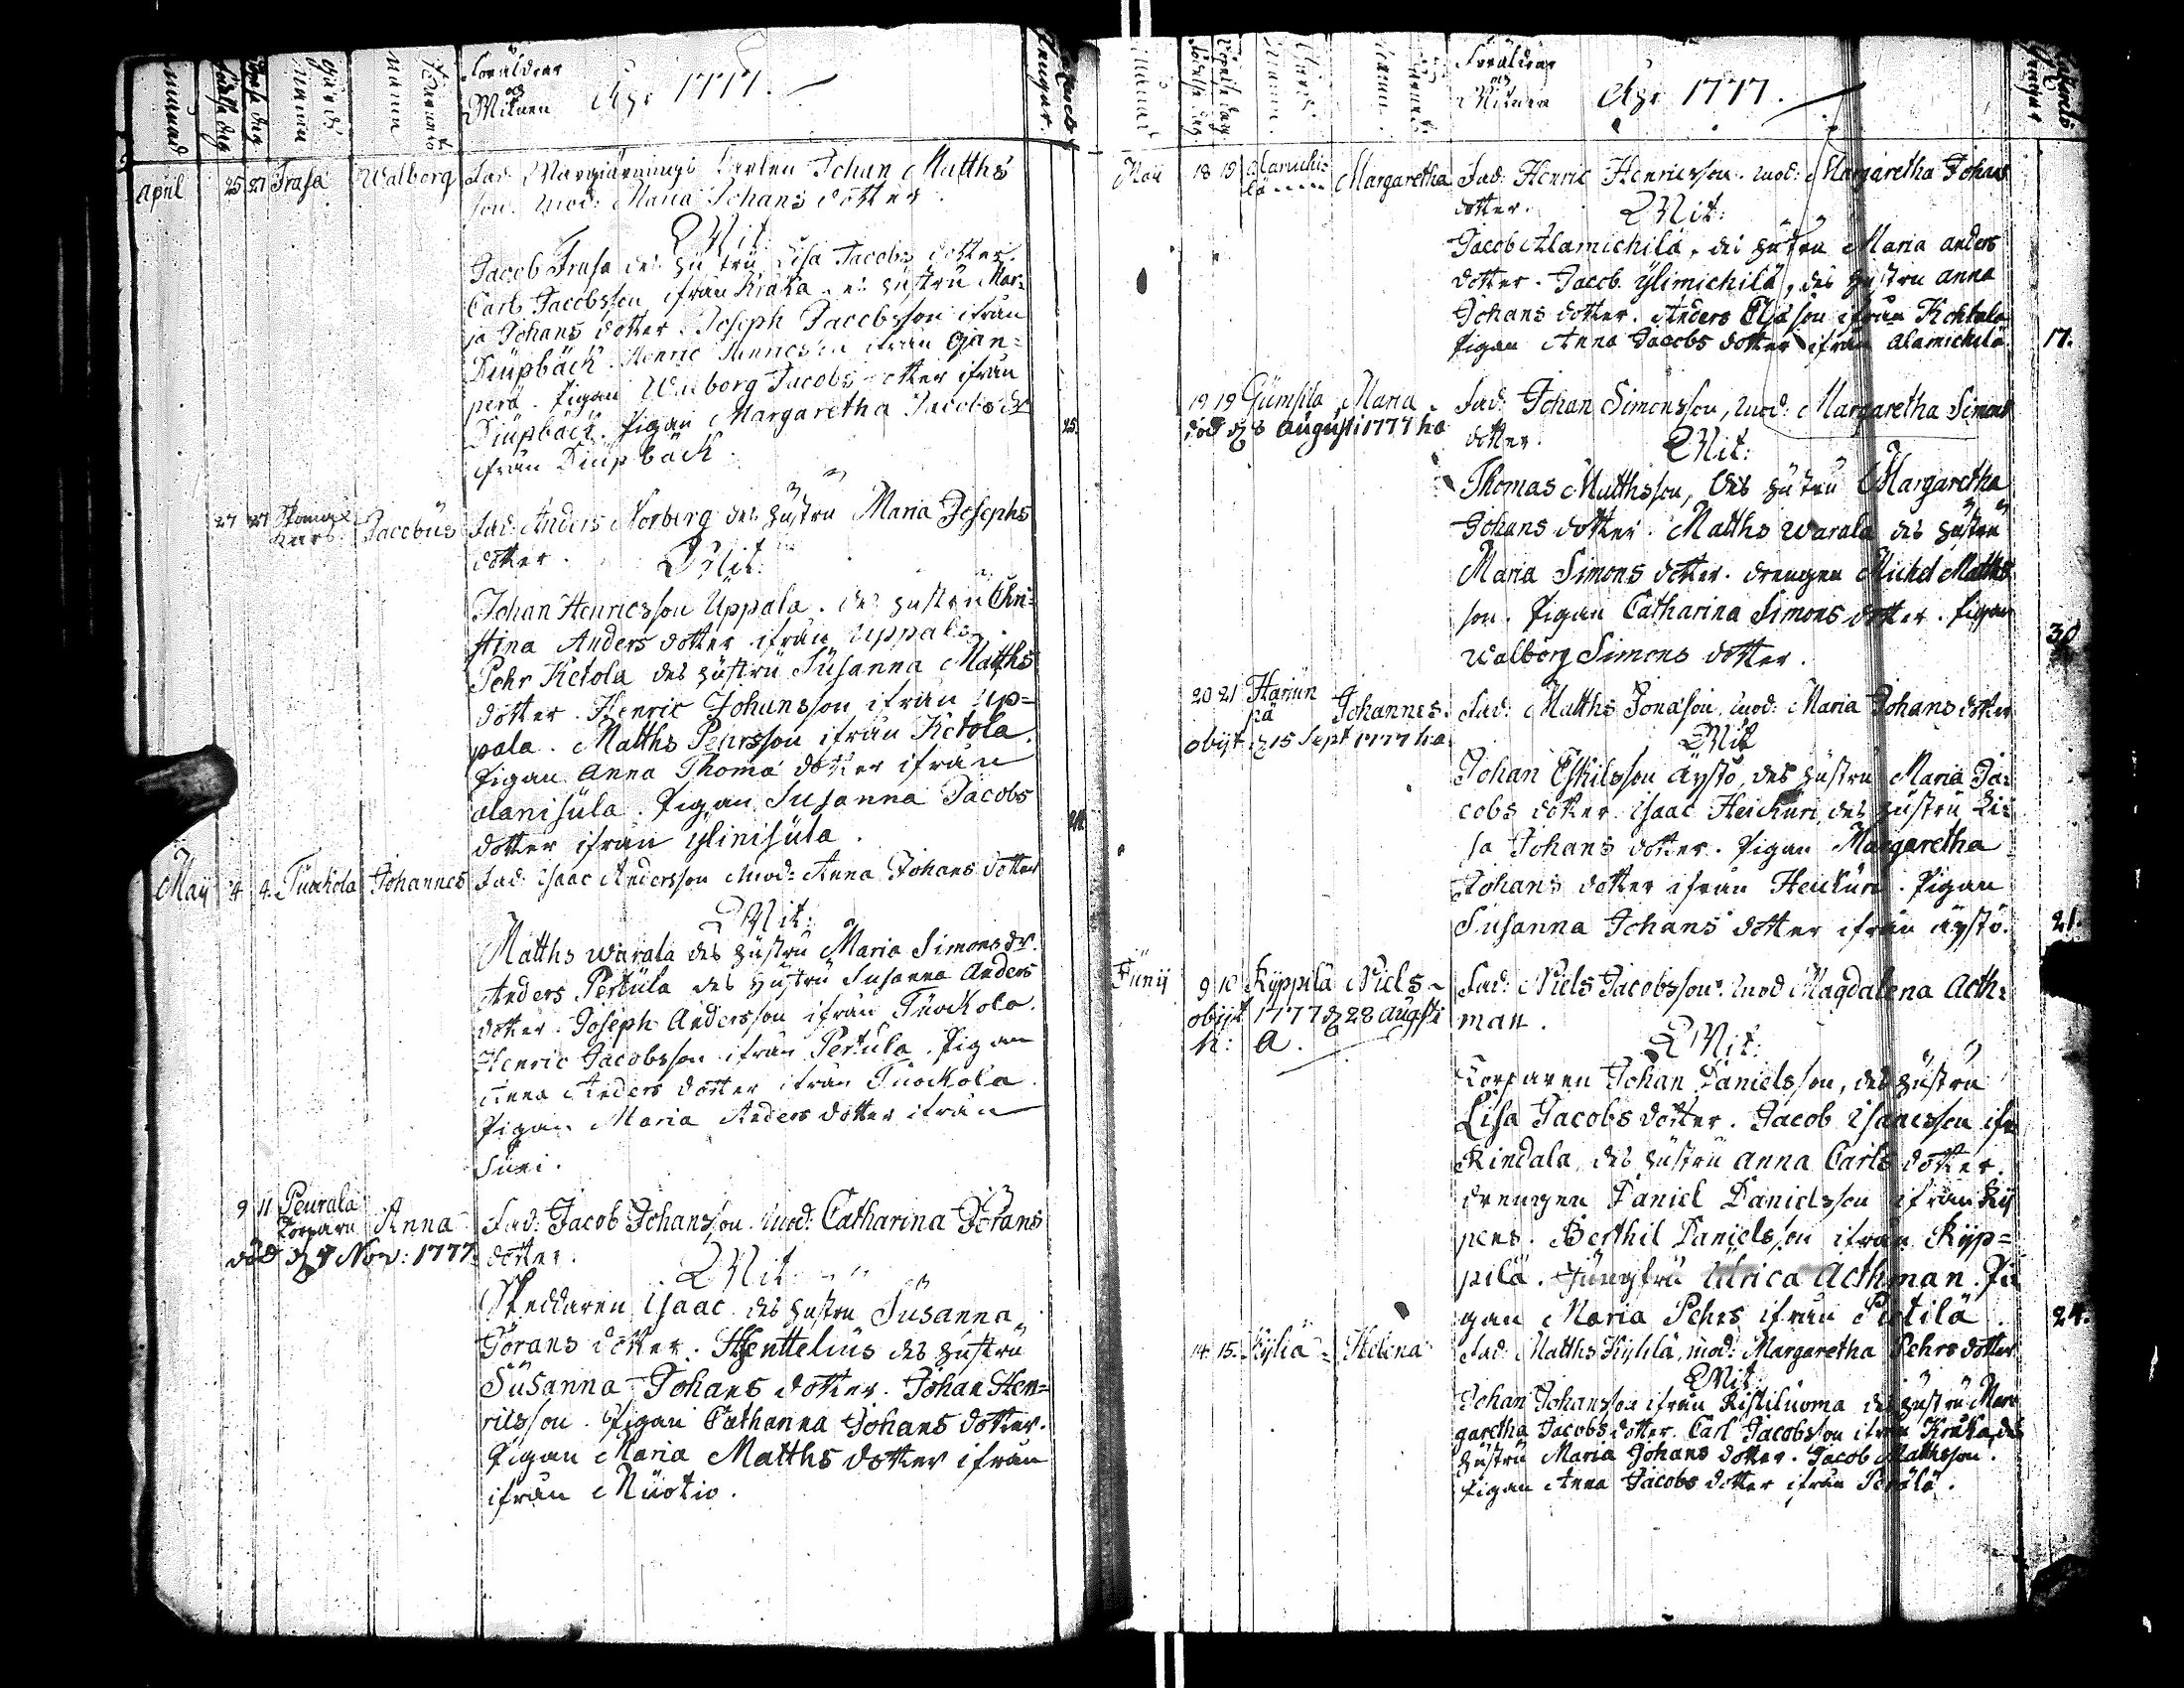 Månad
Födelse dag
Döpelse dag
Gårds
Namn
Barnets
Namn
Föräldrar
och
Witnen Åhr 1777.
April 25 27 Frasa Walborg Fad: Johan Matths
son. Mod: Maria Johans dotter.
Wit:
Jacob Frasa des hustru Lisa Jacobs dotter.
Carl Jacobsson ifrån Kråka des hustru Mar-
ja Johans dotter. Joseph Jacobsson ifrån
Diupbäck. Henric Henricsson ifrån Ojan-
perä. Pigan Walborg Jacobs dotter ifrån
Diupbäck. Pigan Margaretha Jacobs dr
ifrån Diupbäck.
25.
27 27 Jacobus Fad: Anders Norberg des hustru Maria Josephs
dotter. Wit:
Johan Henricsson Uppala. des hustru Chri-
stina Anders dotter ifrån Uppala.
Pehr Ketola des hustru Susanna Matths
dotter. Henric Johansson ifrån Up-
pala. Matths Pehrsson ifrån Ketola.
Pigan Anna Thoma dotter ifrån
alanisula. Pigan Susanna Jacobs
dotter ifrån ylinisula.
Maij 4 4. Tuockola Johannes Fad: Isaac Andersson Mod: Anna Johans dotter
Wit:
Matths Warala des hustru Maria Simons dr.
Anders Pertula des hustru Susanna Anders
dotter. Joseph Andersson ifrån Tuockola.
Henric Jacobsson ifrån Pertula. Pigan
Anna Anders dotter ifrån Tuockola.
Pigan Maria Anders dotter ifrån
Suni.
9 11 Peurala
Torparn Anna Fad: Jacob Johansson. Mod: Catharina Görans
död d 7 Nov: 1777. dotter.
Wit:
Isaac des hustru Susanna
Görans dotter. Henttelius des hustru
Susanna Johans dotter. Johan Hen-
ricsson. Pigan Catharina Johans dotter.
Pigan Maria Matths dotter ifrån
ifrån Nuotio.
Månad
Föräldrar
och
Witnen Åhr 1777.
Maij 18 19 Alamichi-
lä Margaretha Fad: Henric Henricsson. Mod: Margaretha Johans
dotter. Wit:
Jacob Alamichilä, des hustru Maria anders
dotter. Jacob Ylimichilä, des hustru anna
Johans dotter. Anders Elisson ifrån Kohtala
Pigan Anna Jacobs dotter ifrån alamichilä. 17.
19 19 Gumsila Maria. Fad: Johan Simonsson, Mod: Margaretha Simons
död d 8 Augusti 1777 h a dotter. Wit:
Thomas Matthsson, des hustru Margaretha
Johans dotter. Matths Warala des hustru
Maria Simons dotter. drengen Michel Matths
son. Pigan Catharina Simons dotter. Pigan
Walborg Simons dotter. 30
20 21 Harjun
pä Johannes. Fad: Matths Jonasson, Mod: Maria Johans dotter
obijt d 15 Sept 1777 h a. Wit
Johan Eskilsson äystö, des hustru Maria Ja-
cobs dotter. Isaac Heickuri, des hustru Li-
sa Johans dotter. Pigan Margaretha
Johans dotter ifrån Heickuri. Pigan
Susanna Johans dotter ifrån äystö. 21.
Junij 9 10 Kyppilä Niels Fad: Niels Jacobsson. Mod Magdalena Acth-
obijt 1777 d 28 Augsti man.
h: a. Wit:
Torparen Johan Danielsson, des hustru
Lisa Jacobs dotter. Jacob Isaacsson ifr
Rindala, des hustru anna Carls dotter.
drengen Daniel Danielsson ifrån Ky
pers. Berthil Danielsson ifrån Kyp-
pilä. Jungfru Ulrica Acthman. Pi
gan Maria Pehrs ifrån Pietilä. 24.
14. 15. Helena Fad: Matths Kylilä, mod: Margaretha Pehrs dotter
Wit:
Johan Johansson ifrån Ristiluoma des hustru Mar
garetha Jacobs dotter. Carl Jacobsson ifrån Kråka, des
hustru Maria Johans dotter. Jacob Matthsson.
Pigan Anna Jacobs dotter ifrån